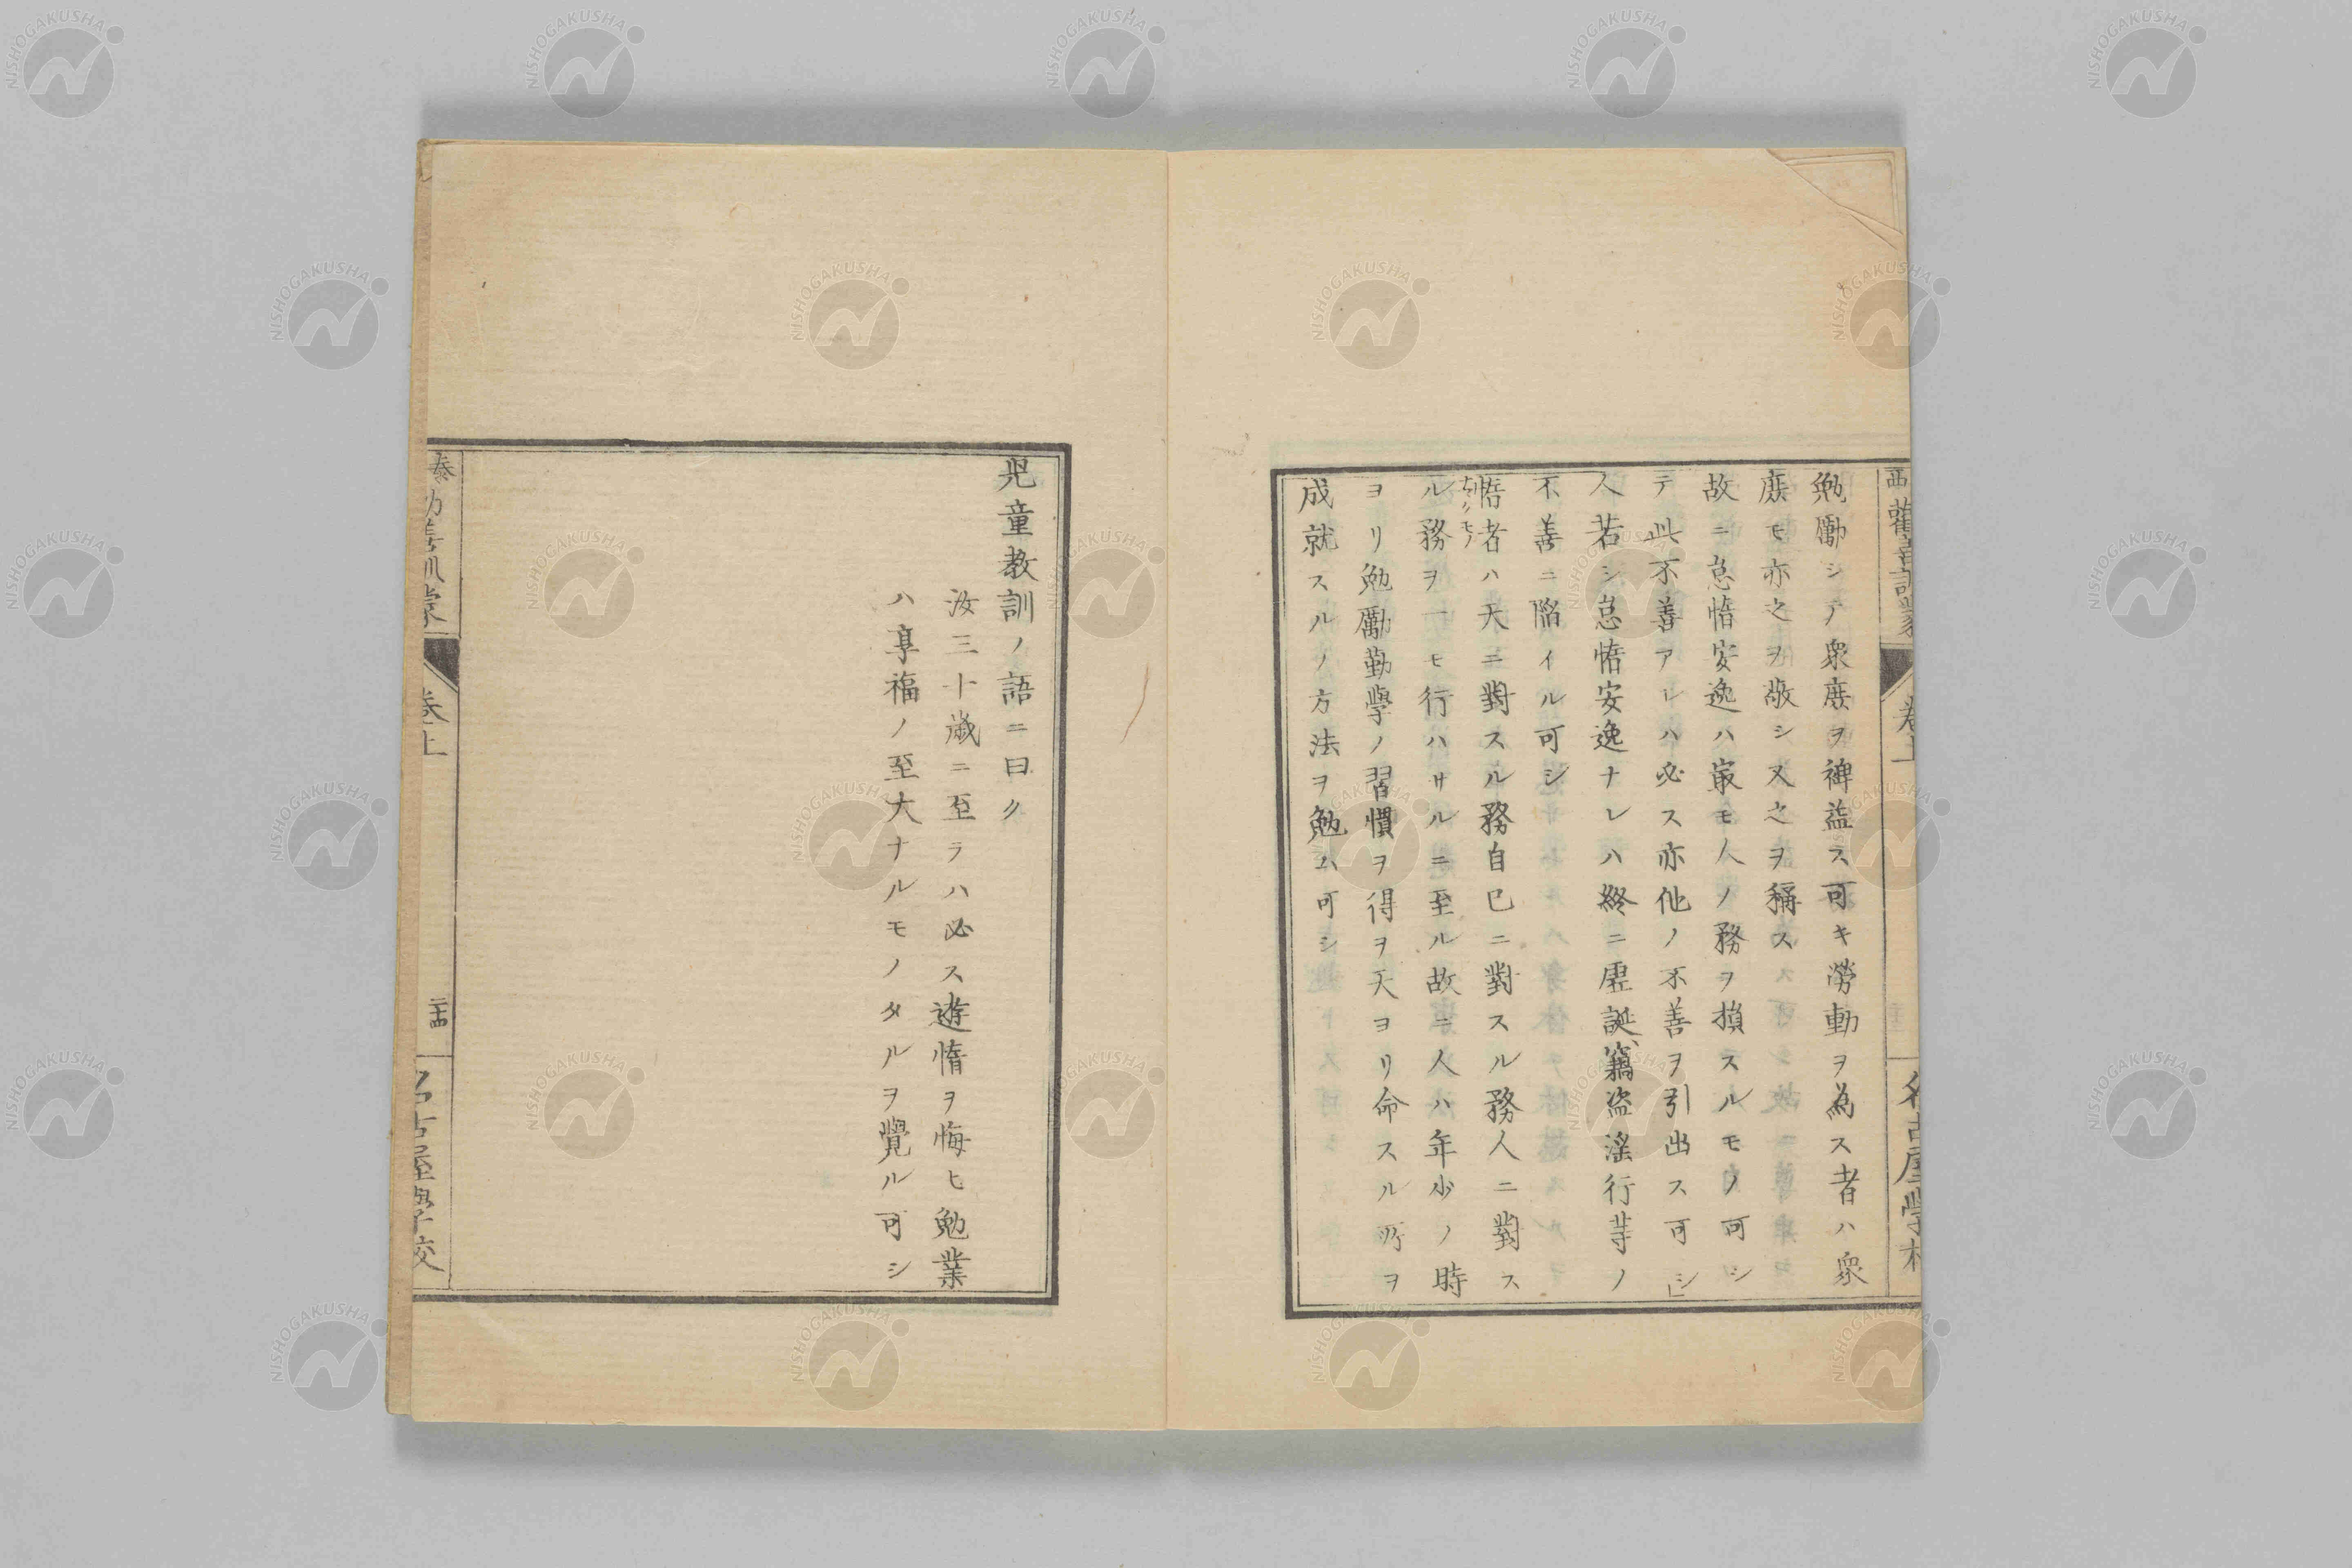 勉勵シテ衆庶ヲ裨益ス可キ勞動ヲ為ス者ハ衆
庶モ亦之ヲ敬シ又之ヲ稱ス
故ニ怠惰安逸ハ㝡モ人ノ務ヲ損スルモノノ可シ
テ此不善アレハ必ス亦他ノ不善ヲ引出ス可シ
人若シ怠惰安逸ナレハ終ニ虚誕、竊盗滛行等ノ
不善ニ陥イル可シ
惰者ハ天ニ對スル務自己ニ對スル務人ニ對ス
ル務ヲ一モ行ハサルニ至ル故ニ人ハ年少ノ時
ヨリ勉勵勤學ノ習慣ヲ得ヲ天ヨリ命スル所ヲ
成就スルノ方法ヲ勉ム可シ
兒童教訓ノ語ニ曰ク
汝三十歳ニ至ラハ必ス遊惰ヲ悔ヒ勉業
ハ享福ノ至大ナルモノタルヲ覺ル可シ
卷上
二十四
NISHOGAKUSHA